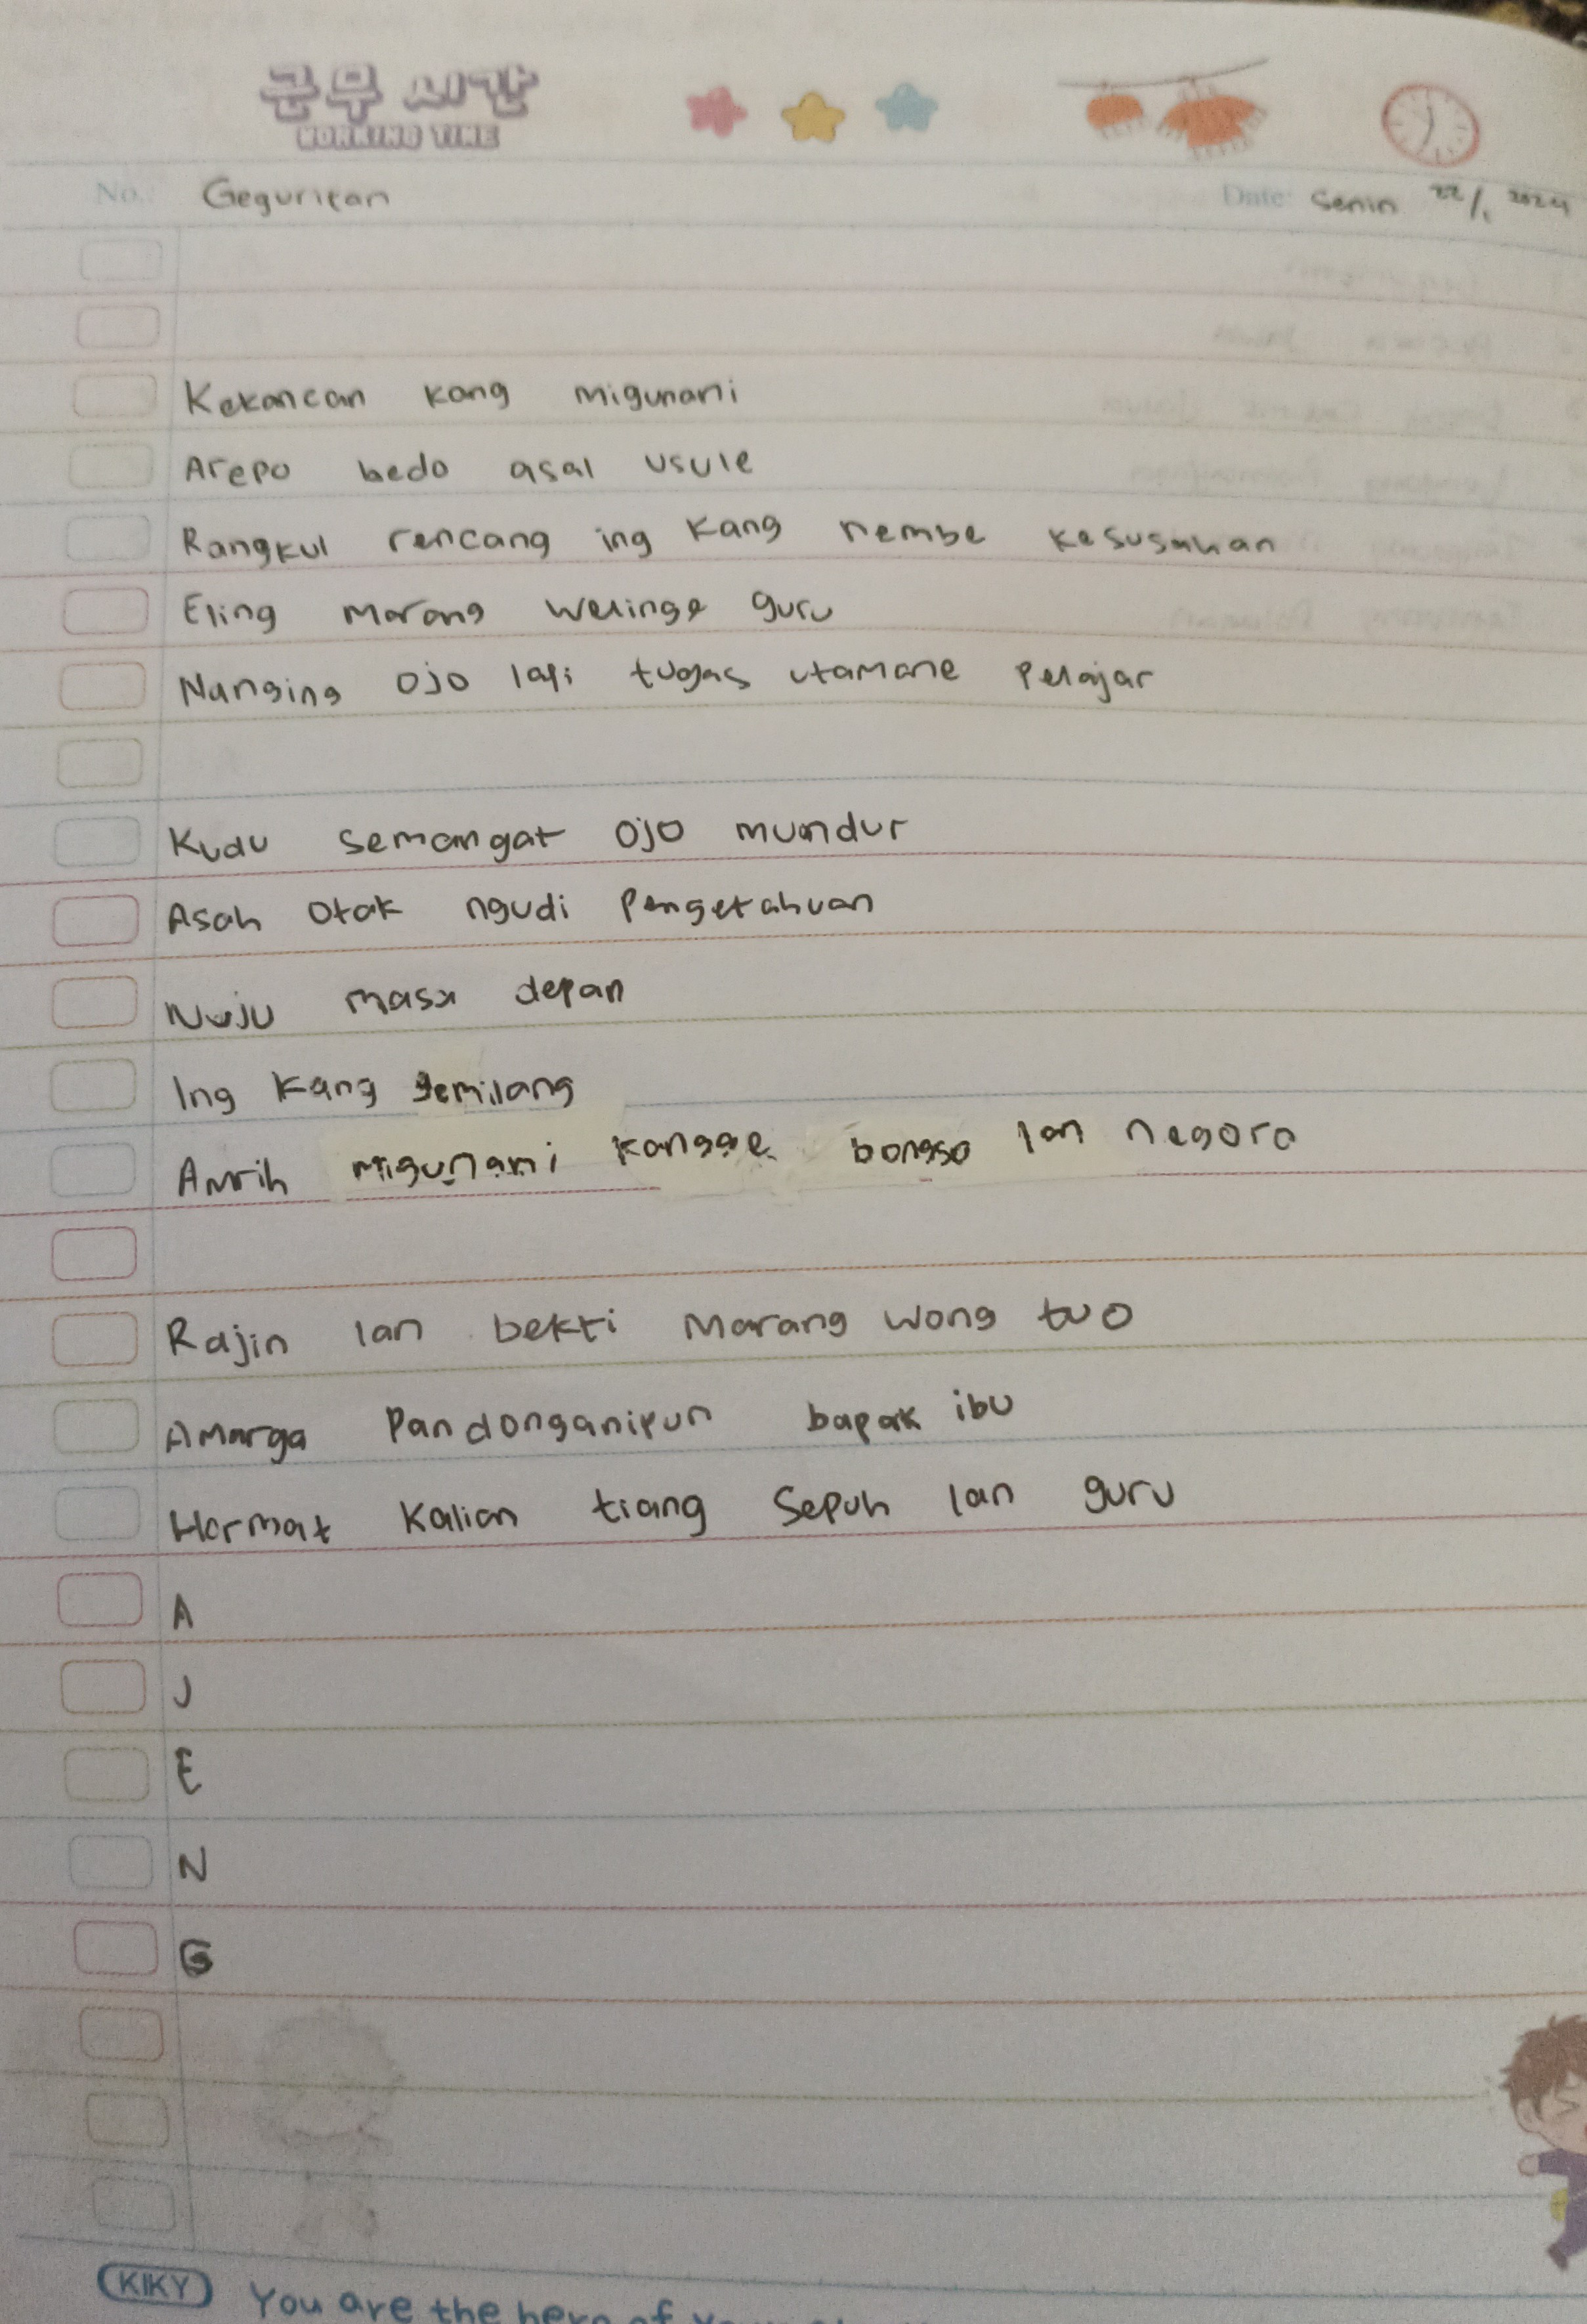 근무 시간
WORKING TIME
No.: Geguritan Date: Senin 22/1 2024
Kekancan kang migunani
Arepo bedo asal usule
Rangkul rencang ing kang nembe kesusahan
Eling marang welinge guru
Nanging ojo lali tugas utamane pelajar
Kudu semangat ojo mundur
Asah otak ngudi pengetahuan
Nuju masa depan
Ing kang gemilang
Amrih migunani kangge bongso lan negoro
Rajin lan bekti marang wong tuo
Amarga Pandonganipun bapak ibu
Hormat kalian tiang sepuh lan guru
A
J
E
N
G
KIKY You are the hero of